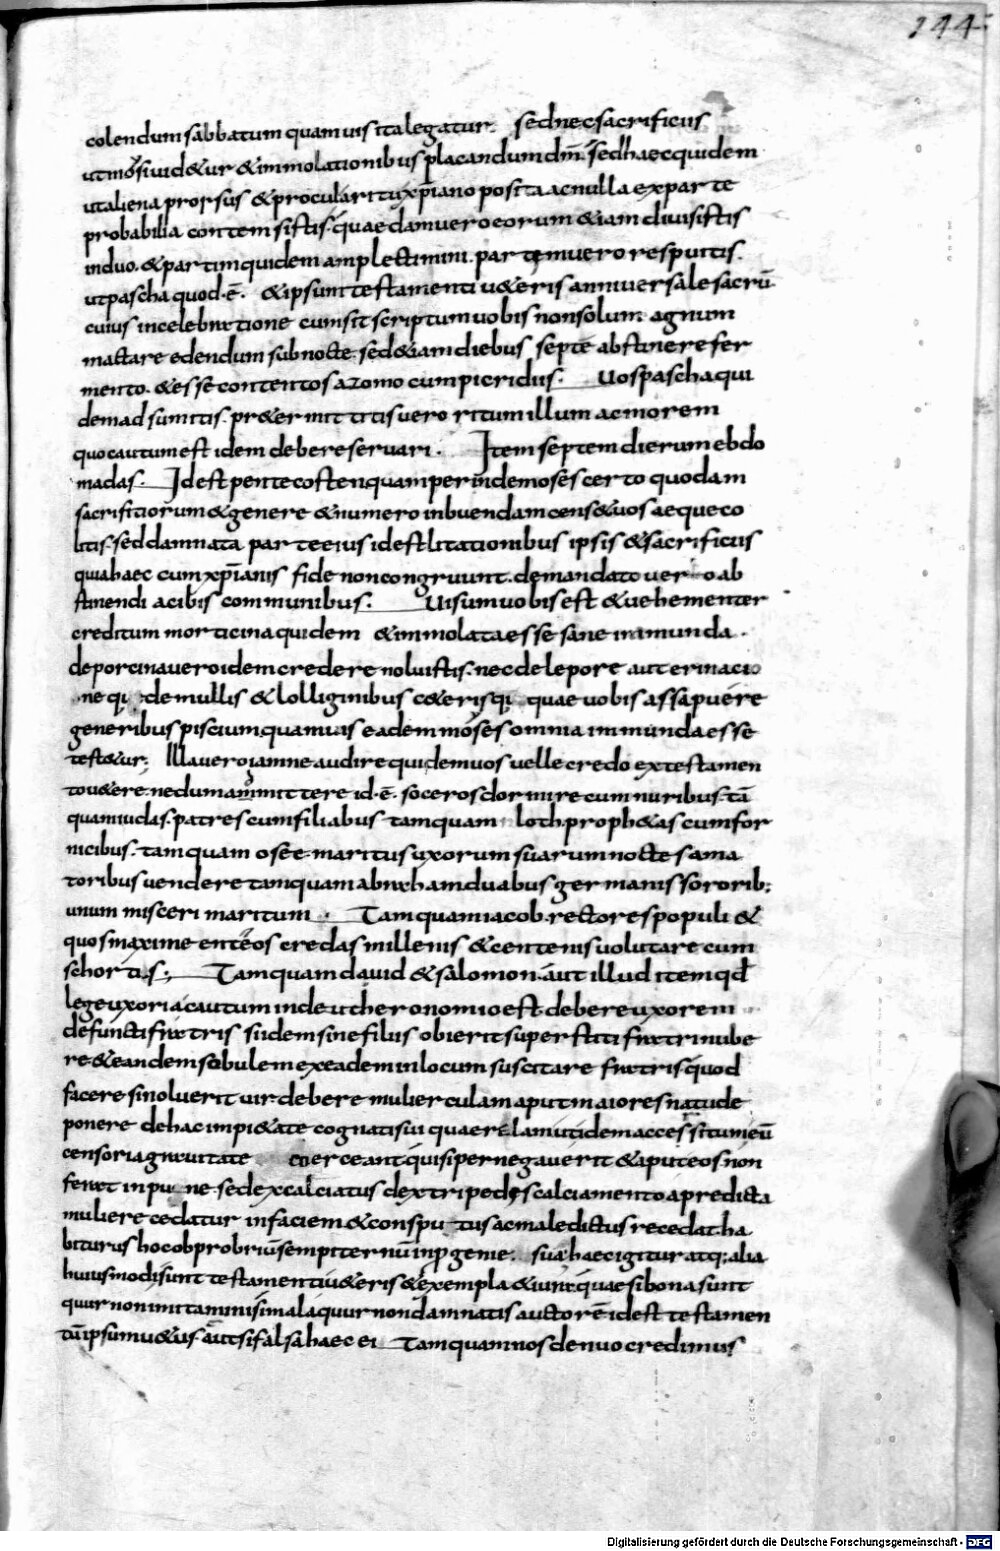 144.
colendum sabbatum quamuis ita legatur. sed nec sacrificiis
ut mosi uidetur & immolationibus placandum dm̅. sed haec quidem
ut aliena prorsus & procul a ritu xp̅iano posita ac nulla ex parte
probabilia contemsistis. quaedam uero eorum etiam diuisistis
in duo. & partim quidem amplectimini. partem uero respuitis.
ut pascha quod .e̅. & ipsum testamenti ueteris anniuersale sacru̅
cuius in celebratione cum sit scriptum uobis non solum agnum
mactare edendum sub nocte. sed etiam diebus septe̅ abstinere fer
mento. & esse contentos azomo cum picridiis. Uos pascha qui
dem adsumitis. praetermittitis uero ritum illum ac morem
quo cautum est idem debere seruari. Item septem dierum ebdo
madas. Id est pentecosten quam perinde moses certo quodam
sacrificiorum & genere & numero inbuendam censet uos aeque co
litis. sed damnata parte eius id est litationibus ipsis & sacrificiis
quia haec cum xp̅ianis fide non congruunt. de mandato uero ab
stinendi a cibis communibus. Uisum uobis est & uehementer
creditum morticina quidem & immolata esse sane inmunda.
de porcina uero idem credere noluistis. nec de lepore aut erinacio
ne qu de mullis & lolliginibus ceterisq; quae uobis assapuere
generibus piscium quamuis eadem moses omnia immunda esse
testetur; Illa uero iam ne audire quidem uos uelle credo ex testamen
to uetere. nedum ammittere id .e̅. soceros dormire cum nuribus. ta̅
quam iudas. patres cum filiabus tamquam loth. prophetas cum for
nicibus. tamquam osee. maritus uxorum suarum noctes ama
toribus uendere tamquam abraham duabus germanis sororib;
unum misceri maritum. Tamquam iacob. rectores populi &
quos maxime enteos credas millenis & centenis uolutare cum
schortis; Tamquam dauid & salomon. aut illud item qd̅
lege uxoria cautum in deutheronomio est. debere uxorem
defuncti fratris si idem sine filiis obierit superstiti fratri nube
re & eandem sobulem ex eadem in locum suscitare fratris quod
facere si noluerit uir debere mulierculam aput maiores natu de
ponere de hac impietate cognati sui quaerelam ut idem accersitum eu̅
censoria grauitate coerceant. qui si pernegauerit & aput eos non
ferat inpune. sed excalciatus dextri pedes calciamento a predicta
muliere cedatur in faciem & conspu tus ac maledictus recedat. ha
biturus hoc obprobriu̅ sempiternu̅ in progenie. sua haec igitur atq; alia
huiusmodi sunt testamenti ueteris & exempla & iura quae si bona sunt
quur non imitamini si mala quur non damnatis auctore̅ id est testamen
tu̅ ipsum uetus. aut si falsa haec ei Tamquam nos de nuo credimus
Digitalisierung gefördert durch die Deutsche Forschungsgemeinschaft - DFG